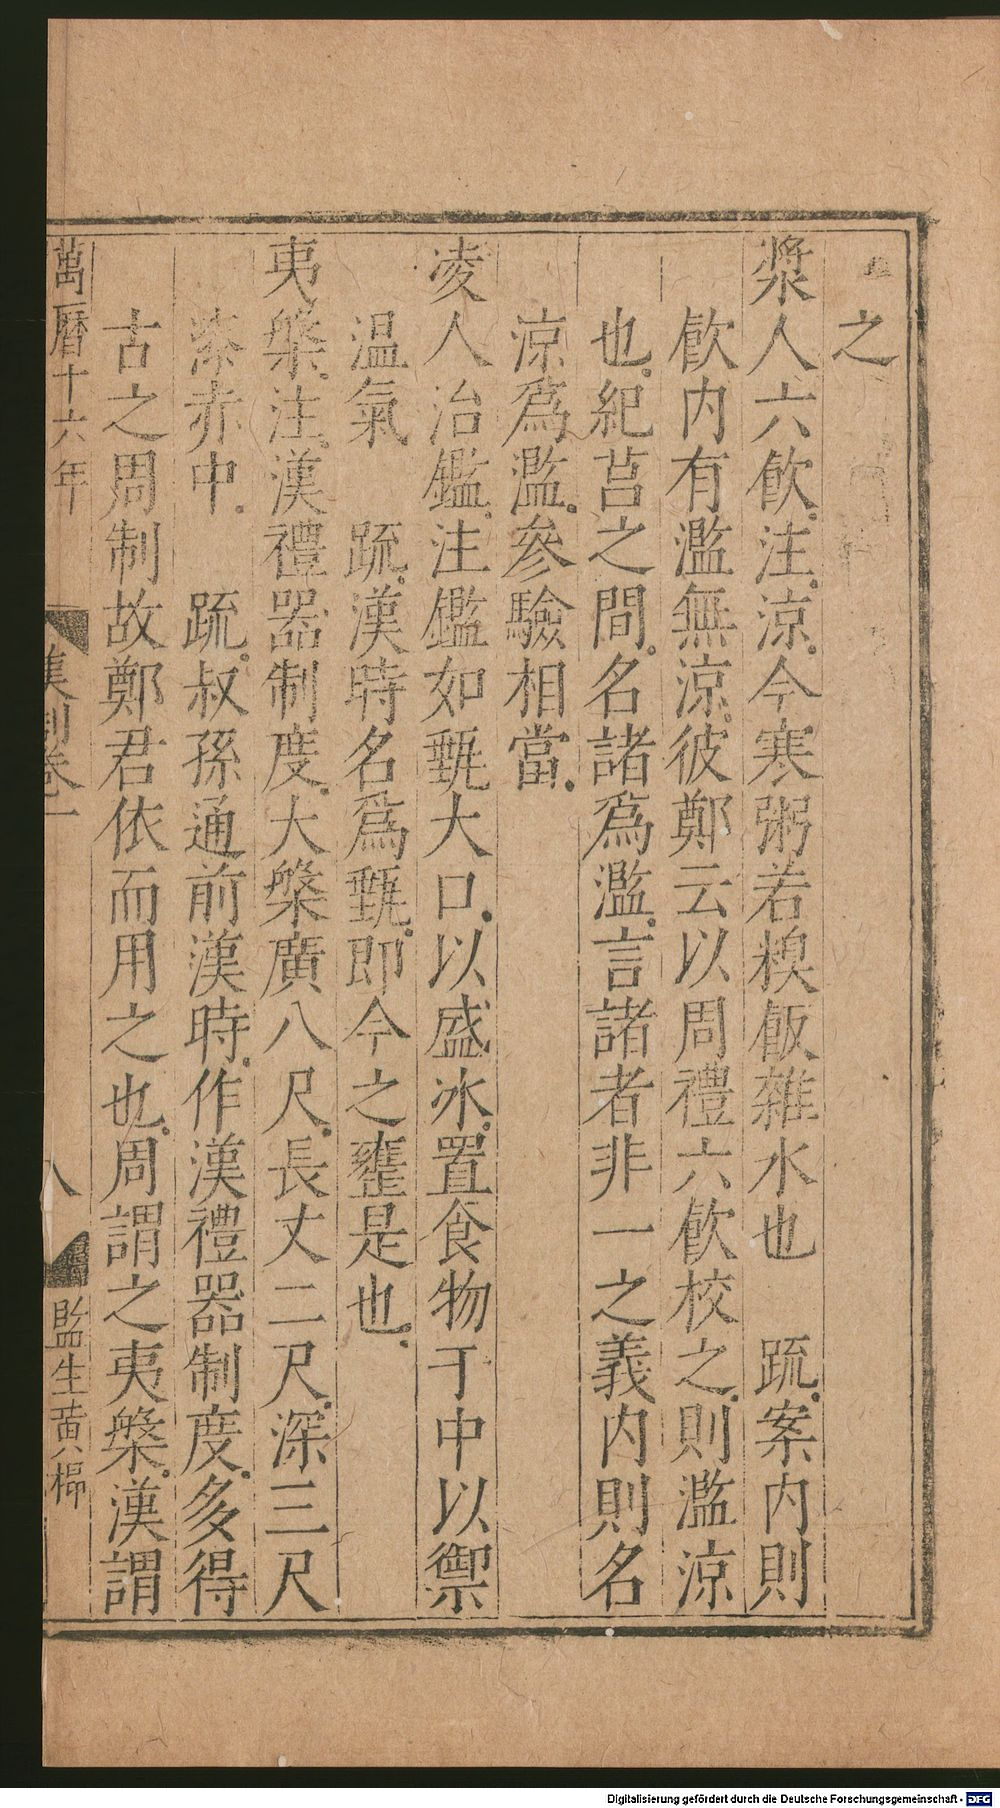 之
漿人六飲注涼今寒粥若糗飯雜水也　疏案内則
飲内有濫無涼彼鄭云以周禮六飲校之則濫涼
也紀莒之間名諸爲濫言諸者非一之義内則名
涼爲濫參驗相當
凌人治鑑注鑑如甀大口以盛冰置食物于中以禦
温氣　疏漢時名爲甀即今之甕是也
夷槃注漢禮器制度大槃廣八尺長丈二尺深三尺
漆赤中　疏叔孫通前漢時作漢禮器制度多得
古之周制故鄭君依而用之也周謂之夷槃漢謂
萬曆十六年　卷一　八　監生黄
Digitalisierung gefördert durch die Deutsche Forschungsgemeinschaft - DFG